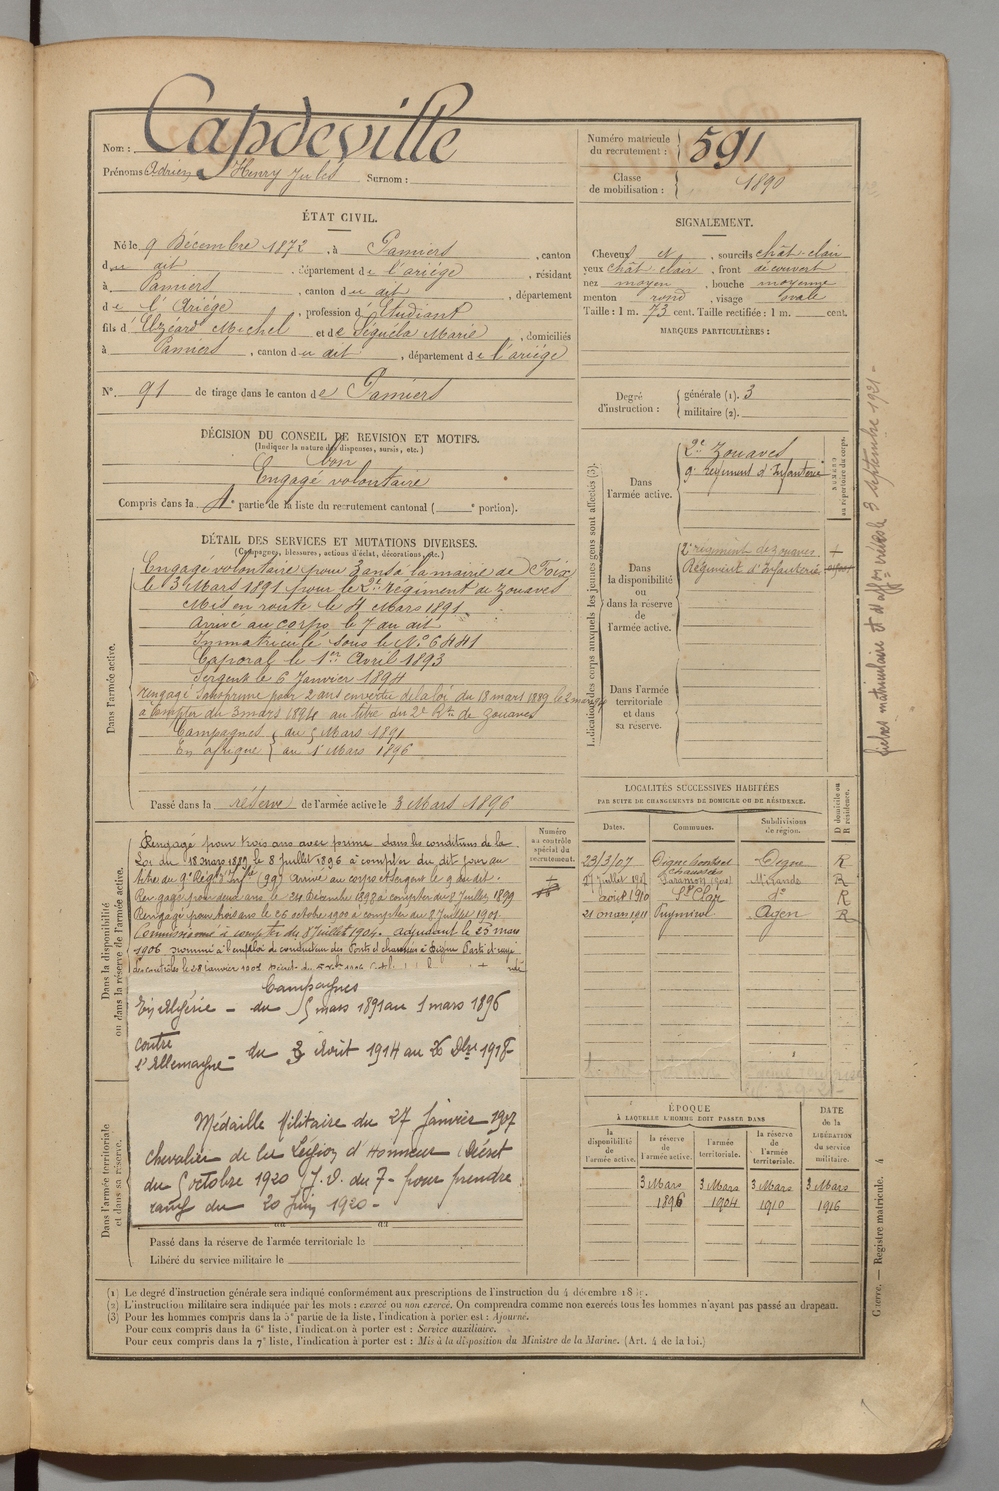 Nom : Capdeville
Prénoms : Adrien Henry Jules Surnom :
Numéro matricule du recrutement : 591
Classe de mobilisation : 1890
ÉTAT CIVIL.
Né le 9 Décembre 1872, à Pamiers, canton
du dit, département de l'ariége, résidant
à Pamiers, canton du dit, département
de l'Ariége, profession d'Étudiant
fils d'Elzéard Michel et de Séguéla Marie, domiciliés
à Pamiers, canton du dit, département de l'ariége
N° 91 de tirage dans le canton de Pamiers
DÉCISION DU CONSEIL DE REVISION ET MOTIFS.
(Indiquer la nature des dispenses, sursis, etc.)
bon
Engagé volontaire
Compris dans la 4e partie de la liste du recrutement cantonal ( e portion).
DÉTAIL DES SERVICES ET MUTATIONS DIVERSES.
(Campagnes, blessures, actions d'éclat, décorations, etc.)
Dans l'armée active.
Engagé volontaire pour 3 ans à la mairie de Foix
le 3 Mars 1891 pour le 2e régiment de zouaves
Mis en route le 4 Mars 1891
Arrivé au corps le 7 du dit
Immatriculé sous le N° 6441
Caporal le 1er Avril 1893
Sergent le 6 Janvier 1894
Rengagé sans prime pour 2 ans en vertu de la loi du 18 mars 1889 le 2 mars 94
à compter du 3 mars 1894 au titre du 2e Rt de zouaves
Campagnes { du 5 Mars 1891
En afrique } au 1 Mars 1896
Passé dans la réserve de l'armée active le 3 Mars 1896
Dans la disponibilité ou dans la réserve de l'armée active.
Numéro au contrôle spécial du recrutement.
Rengagé pour trois ans avec prime dans les conditions de la
Loi du 18 mars 1889 le 8 juillet 1896 à compter du dit jour au
titre du 9e Régt d'Infie (99) Arrivé au corps et Sergent le 9 du dit.
Rengagé pour deux ans le 24 Décembre 1898 à compter du 8 Juillet 1899
Rengagé pour trois ans le 26 octobre 1900 à compter du 8 Juillet 1901.
Commissionné à compter du 8 Juillet 1904. adjudant le 25 mars
1906 nommé à l'emploi de conducteur des Ponts et chaussées à Digne Parti et rayé
des contrôles le 28 janvier 1907
Campagnes
En Algérie - du 5 mars 1891 au 1 mars 1896
contre l'Allemagne - du 3 Août 1914 au 26 Dbre 1918
Médaille Militaire du 27 Janvier 1907
chevalier de la Légion d'Honneur (Décret
du 5 octobre 1920 J.O. du 7 - pour prendre
rang du 20 juin 1920 -
Dans l'armée territoriale et dans sa réserve.
Passé dans la réserve de l'armée territoriale le
Libéré du service militaire le
SIGNALEMENT.
Cheveux et, sourcils chât. clair
yeux chât. clair, front découvert
nez moyen, bouche moyenne
menton rond, visage ovale
Taille : 1 m. 73 cent. Taille rectifiée : 1 m. cent.
MARQUES PARTICULIÈRES :
Degré d'instruction : générale (1). 3
militaire (2).
Indication des corps auxquels les jeunes gens sont affectés (3).
NUMÉRO au répertoire du corps.
Dans l'armée active.
2e Zouaves
9e régiment d'Infanterie
Dans la disponibilité ou dans la réserve de l'armée active.
2e régiment de zouaves
Régiment d'Infanterie
Dans l'armée territoriale et dans sa réserve.
LOCALITÉS SUCCESSIVES HABITÉES
PAR SUITE DE CHANGEMENTS DE DOMICILE OU DE RÉSIDENCE.
Dates. Communes. Subdivisions de région. D domicile ou R résidence.
23/3/07 Digne ponts et chaussées Digne R
Juillet Saramon (Gers) Mirande R
août 1910 St Clar do R
21 mars 1911 Puymirol Agen R
ÉPOQUE
À LAQUELLE L'HOMME DOIT PASSER DANS
la disponibilité de l'armée active. la réserve de l'armée active. l'armée territoriale. la réserve de l'armée territoriale. DATE de la LIBÉRATION du service militaire.
3 Mars 1896 3 Mars 1904 3 Mars 1910 3 Mars 1916
fiches matriculaire et d'affon vérifié 3 septembre 1921 -
Guerre. — Registre matricule. 4
(1) Le degré d'instruction générale sera indiqué conformément aux prescriptions de l'instruction du 4 décembre 18
(2) L'instruction militaire sera indiquée par les mots : exercé ou non exercé. On comprendra comme non exercés tous les hommes n'ayant pas passé au drapeau.
(3) Pour les hommes compris dans la 5e partie de la liste, l'indication à porter est : Ajourné.
Pour ceux compris dans la 6e liste, l'indication à porter est : Service auxiliaire.
Pour ceux compris dans la 7e liste, l'indication à porter est : Mis à la disposition du Ministre de la Marine. (Art. 4 de la loi.)